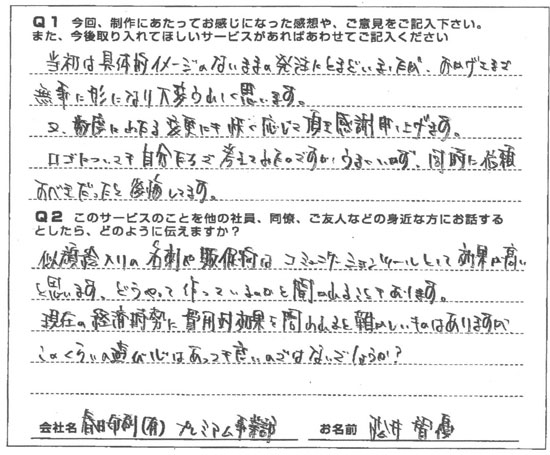 Q1 今回、制作にあたってお感じになった感想や、ご意見をご記入下さい。
また、今後取り入れてほしいサービスがあればあわせてご記入ください
当初は具体的イメージのないままの発注にとまどいましたが、おかげさまで
無事に形になり大変うれしく思います。
又、数度にわたる変更にも快く応じて頂き感謝申し上げます。
ロゴについても自分たちで考えてみたのですがうまくいかず、同時に依頼
すべきだったと後悔してます。
Q2 このサービスのことを他の社員、同僚、ご友人などの身近な方にお話する
としたら、どのように伝えますか？
似顔絵入りの名刺や販促物はコミュニケーションツールとして効果が高い
と思います。どうやって作っているのかと聞かれることもあります。
現在の経済情勢に費用対効果を問われると難かしいものはありますが
このくらいの遊び心はあっても良いのではないでしょうか？
会社名 春日印刷(有) プレミアム事業部 お名前 井 智優